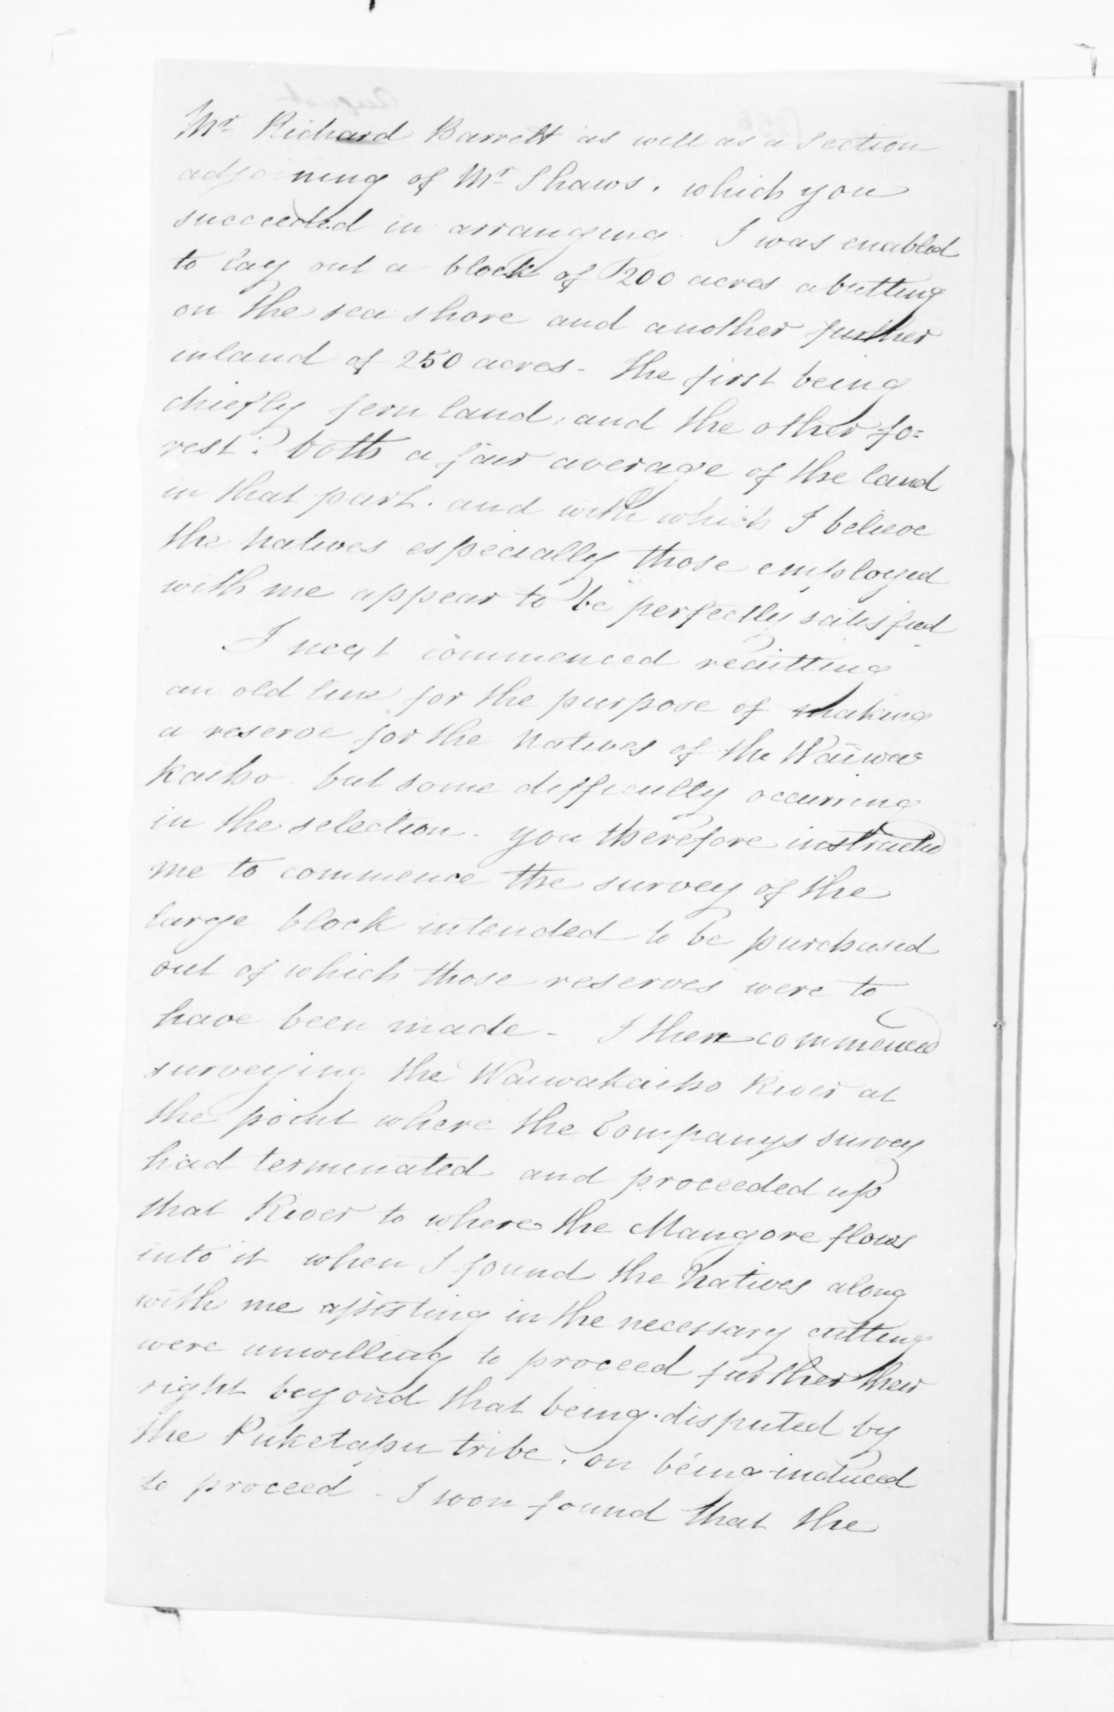 Mr Richard Barrett as well as a Section
adjoining of Mr Shaws. which you
succeeded in arranging. I was enabled
to lay out a block of 1200 acres abutting
on the sea shore and another further
inland of 250 acres - the first being
chiefly fern land, and the other fo=
rest: both a fair average of the land
in that part. and with which I believe
the natives especially those employed
with me appear to be perfectly satisfied
I next commenced recutting
an old line for the purpose of making
a reserve for the natives of the Waiwa=
kaiho but some difficulty occurring
in the selection. you therefore instructed
me to commence the survey of the
large block intended to be purchased
out of which those reserves were to
have been made - I then commenced
surveying the Waiwakaiho River at
the point where the Companys survey
had terminated and proceeded up
that River to where the Mangore flows
into it when I found the Natives along
with me assisting in the necessary cutting
were unwilling to proceed further their
right beyond that being disputed by
the Puketapu tribe. on being induced
to proceed - I soon found that the